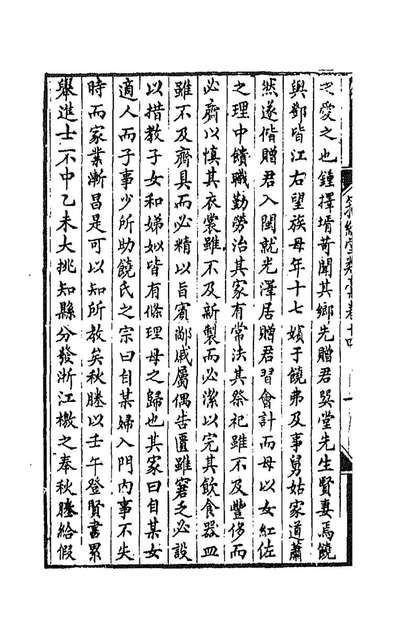 愛之也鍾擇壻苛聞其鄉先贈君巽堂先生賢妻焉饒
與鄧皆江右望族母年十七嬪于饒弗及事舅姑家道蕭
然遂偕贈君入閩就光澤居贈君習會計而母以女紅佐
之理中饋職勤勞治其家有常法其祭祀雖不及豐侈而
必齊以慎其衣裳雖不及新製而必潔以完其飲食器皿
雖不及齊具而必精以旨賓鄰戚屬偶告匱雖窘乏必設
以措教子女和娣姒皆有條理母之歸也其家曰自某女
適人而子事少所助饒氏之宗曰自某婦入門內事不失
時而家業漸昌是可以知所教矣秋塍以壬午登賢書累
舉進士不中乙未大挑知縣分發浙江檄之奉秋塍給假
類藁卷十四
一